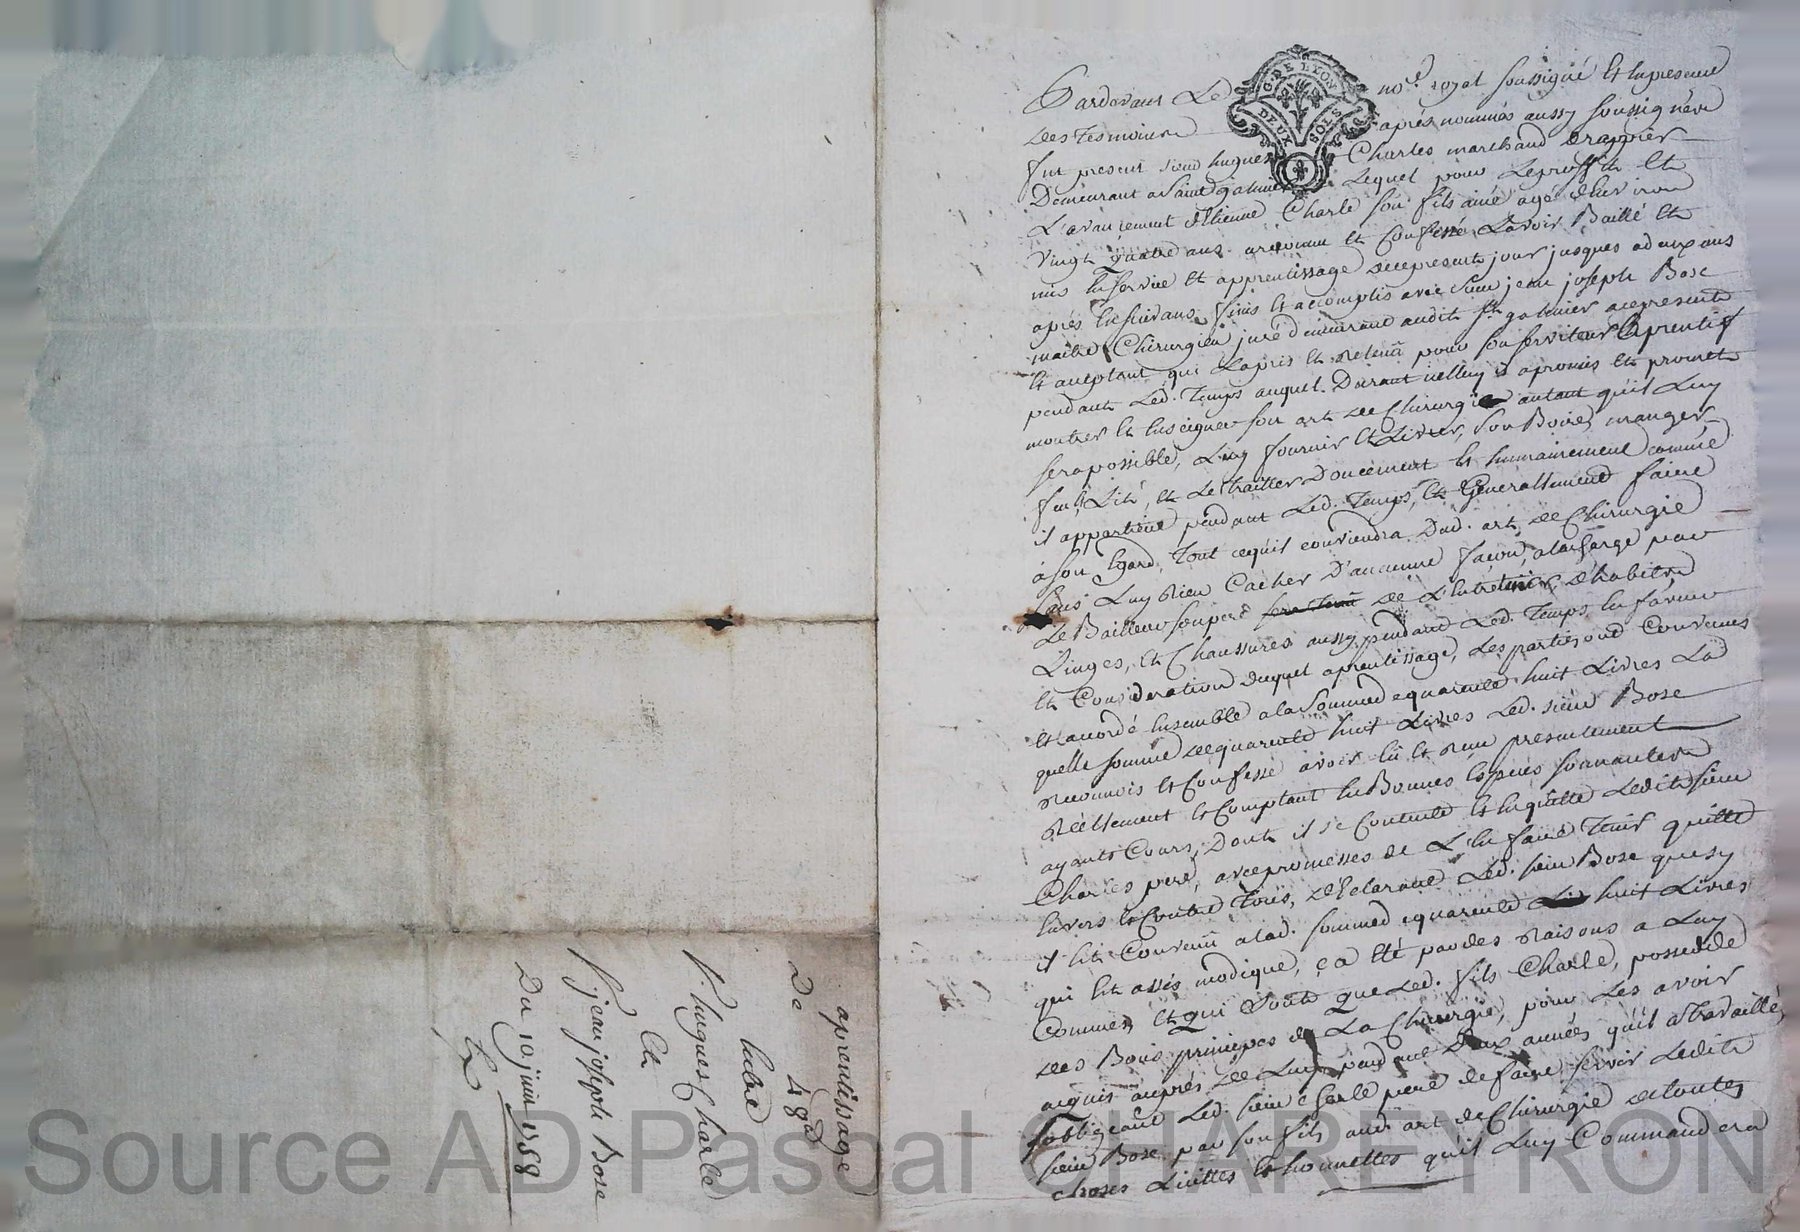 Pardevant Le no.re royal soussigné Et enpresence
des tesmoins aprés nommés aussy soussignés
G. DE LYON
DEUX SOLS
fut present sieur hugues Charles marchand Drappier
Demeurant a Saint galmier Lequel pour Leproffit Et
L'avancement d'Etienne Charle son fils ainé agé d'Environ
vingt quatre ans a reconnu Et Confessé Lavoir Baillé Et
mis En service Et apprentissage decepresent jour jusques adeux ans
aprés Ensuivans finis Et accomplis avec sieur jean joseph Bose
maitre Chirurgien juré demeurant audit st galmier acepresent
Et aceptant qui Lapris Et Retenu pour son serviteur Et aprentif
pendant Led. temps auquel Durant icelluy a apromis Et promet
montrer Et Enseigner son art de Chirurgie autant qu'il Luy
sera possible, Luy fournir Et Livrer, son Boire, manger,
feu, Lit, et Le traitter Doucement Et humainement comme
il appartient pendant Led. temps, Et Generallement faire
à son Egard, tout cequil conviendra Dud. art de Chirurgie
sans Luy Rien Cacher D'aucunne facon, alacharge par
Le Bailleur son pere de L'Entretenir, d'habits,
Linges, Et Chaussures aussy pendant Led. temps En faveur
Et Consideration duquel aprentissage, Les parties ont Convenues
Et accordé Ensemble a la somme de quarente huit Livres La
quelle somme de quarente huit Livres Led. sieur Bose
Reconnois Et Confesse avoir Eu Et Receu presentement
Réellement Et Comptant En Bonnes Especes sonnantes
ayants Cours, Dont il se Contente Et En quitte Ledit sieur
Charles pere, avec promesses de L'En faire tenir quitte
Envers Et Contre tous, declarant Led. sieur Bose que sy
il Est Convenu a lad. somme de quarente huit Livres
qui Est assés modique, ça Eté par des Raisons a Luy
Connues Et qui sont que Led. fils Charle, possede
des Bons principes de La Chirurgie, pour Les avoir
acquis auprés de Luy pendant Deux années qu'il a travaillé,
s'obligeant Led. sieur Charle pere de faire servir Ledit
sieur Bose par son fils aud. art de Chirurgie de toutes
choses Licittes Et honnettes qu'il Luy Commandera
aprentissage
De 48#
Entre
s. hugues Charle
Et
s. jean joseph Bose
Du 10. juin 1758
Source AD Pascal CHAREYRON